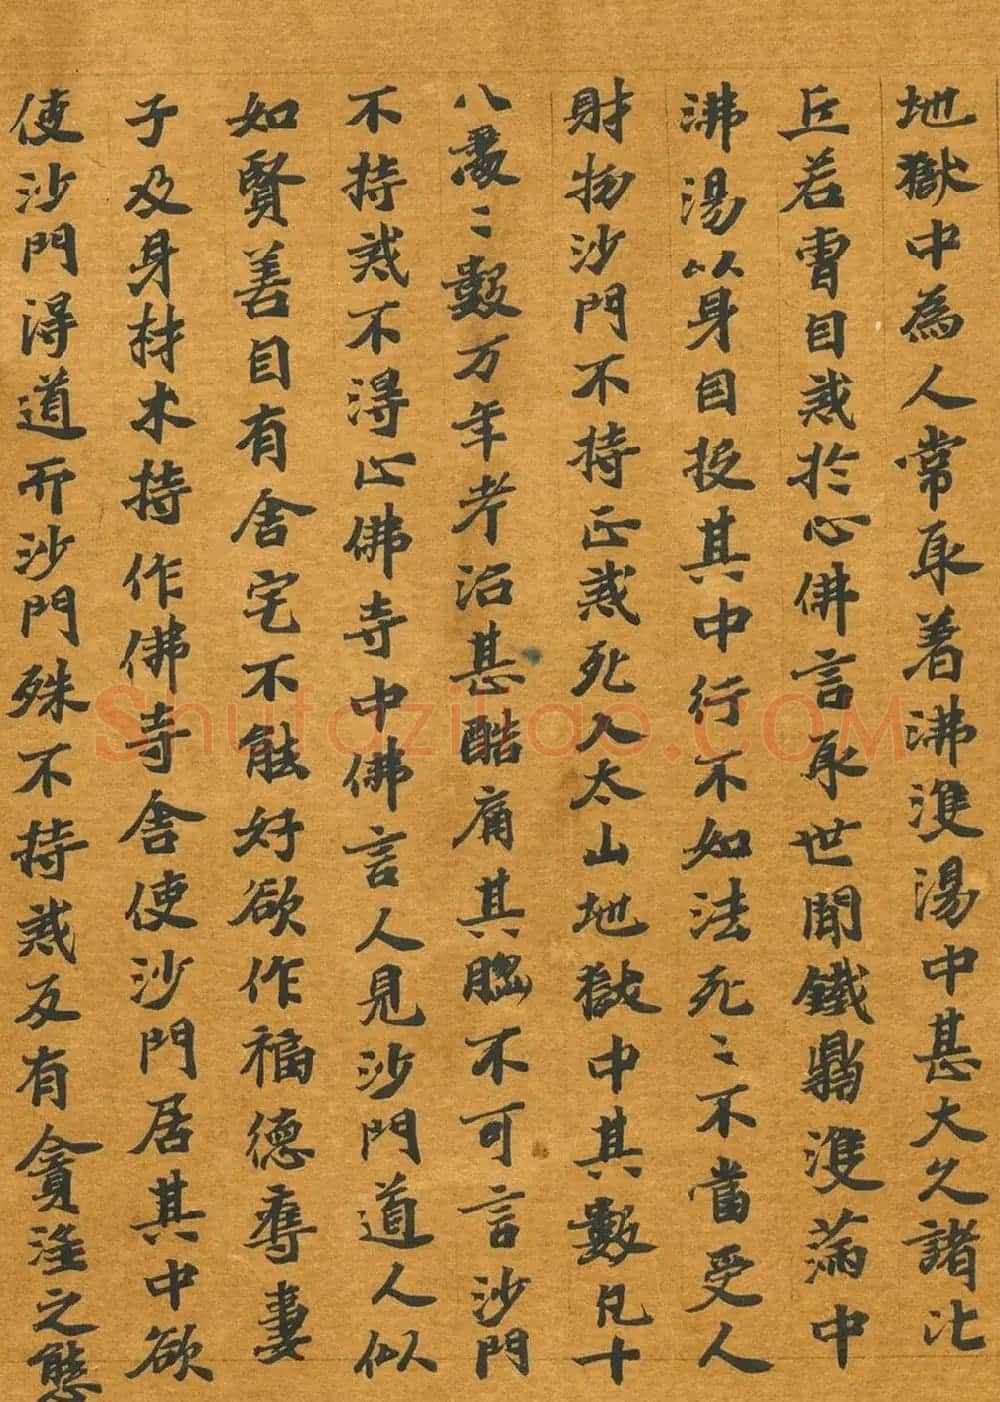 地獄中為人常取著沸湯中甚大久諸比
丘若曹自戒於心佛言取世間鐵鼎滿中
沸湯以身自投其中行不如法死〻不當受人
財物沙門不持正戒死入太山地獄中其數凡十
八處〻數万年考治甚酷痛其惱不可言沙門
不持戒不得止佛寺中佛言人見沙門道人似
如賢善自有舍宅不能好欲作福德奪妻
子及身材木持作佛寺舍使沙門居其中欲
使沙門得道而沙門殊不持戒反有貪婬之態
Shufaziliao.COM